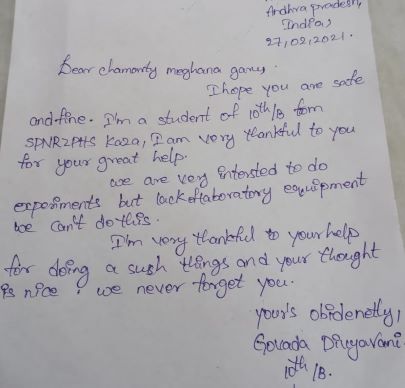 Andhra pradesh,
India,
27,02,2021.
Dear chamonty meghana garu,
I hope you are safe
and fine. I'm a student of 10th/B from
SPNRZPHS Kaza, I am very thankful to you
for your great help.
we are very intersted to do
expesiments but lack of laboratory equipment
we can't do this.
I'm very thankful to your help
for doing a sush things and your thought
is nice, we never forget you.
your's obidenetly,
Govada Divyavani
10th/B.